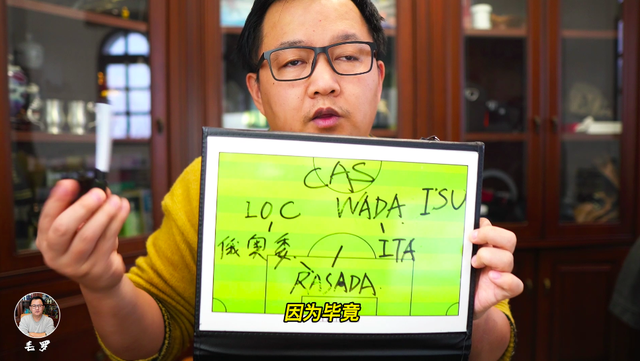 CAS
IOC WADA ISU
俄奥委 ITA
RASADA
因为毕竟
毛罗